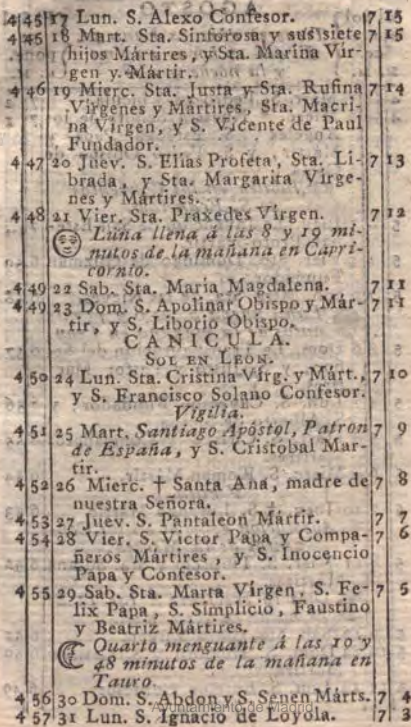 4 45 17 Lun. S. Alexo Confesor. 7 15
4 45 18 Mart. Sta. Sinforosa y sus siete 7 15
hijos Mártires, y Sta. Marina Vír-
gen y Mártir.
4 46 19 Mierc. Sta. Justa y Sta. Rufina 7 14
Vírgenes y Mártires, Sta. Macri-
na Vírgen, y S. Vicente de Paul
Fundador.
4 47 20 Juev. S. Elías Profeta, Sta. Li- 7 13
brada, y Sta. Margarita Vírge-
nes y Mártires.
4 48 21 Vier. Sta. Praxedes Vírgen. 7 12
Luna llena á las 8 y 19 mi-
nutos de la mañana en Capri-
cornio.
4 49 22 Sab. Sta. María Magdalena. 7 11
4 49 23 Dom. S. Apolinar Obispo y Már- 7 11
tir, y S. Liborio Obispo.
CANICULA.
SOL EN LEON.
4 50 24 Lun. Sta. Cristina Vírg. y Márt., 7 10
y S. Francisco Solano Confesor.
Vigilia.
4 51 25 Mart. Santiago Apóstol, Patron 7 9
de España, y S. Cristóbal Mar-
tir.
4 52 26 Mierc. † Santa Ana, madre de 7 8
nuestra Señora.
4 53 27 Juev. S. Pantaleon Mártir. 7 7
4 54 28 Vier. S. Victor Papa y Compa- 7 6
ñeros Mártires, y S. Inocencio
Papa y Confesor.
4 55 29 Sab. Sta. Marta Vírgen, S. Fe- 7 5
lix Papa, S. Simplicio, Faustino
y Beatriz Mártires.
Quarto menguante á las 10 y
48 minutos de la mañana en
Tauro.
4 56 30 Dom. S. Abdon y S. Senen Márts. 7 4
Ayuntamiento de Madrid
4 57 31 Lun. S. Ignacio de Loyola. 7 3